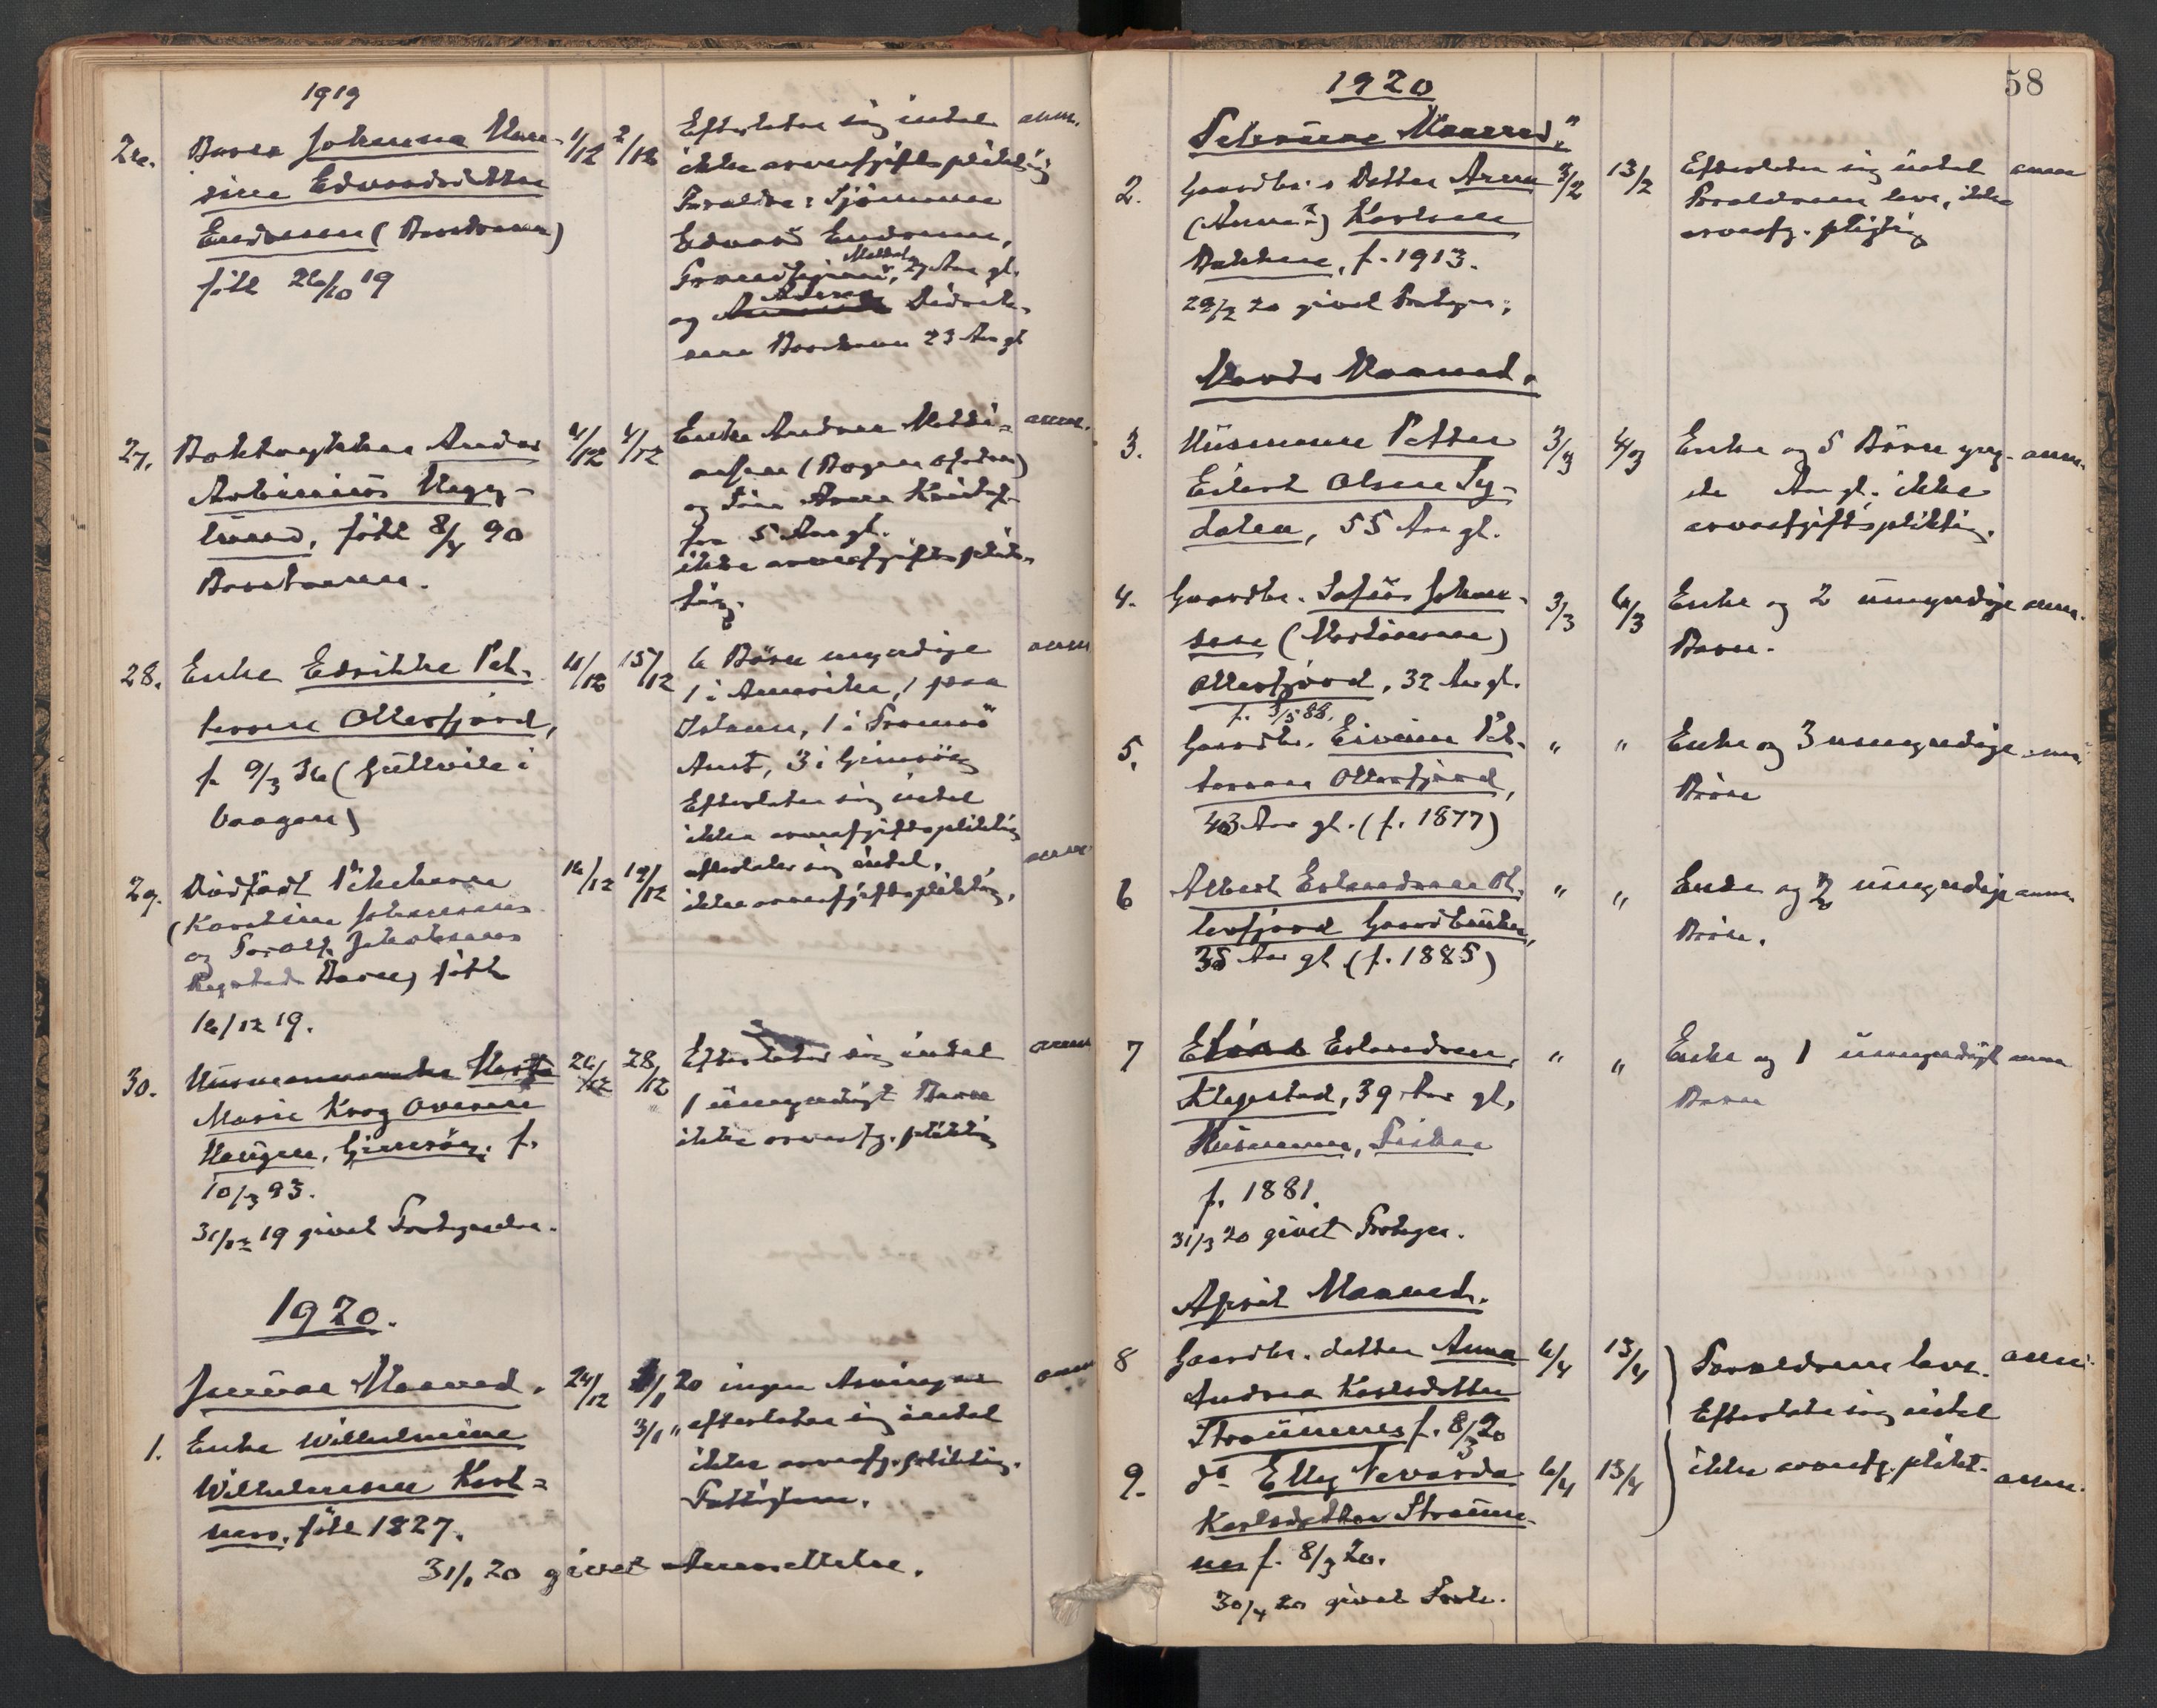 1919
26. Barn Johanna Han-
sine Edvardsdatter
Endresen (Barstrand)
født 26/10 19
1/12 2/12
Efterlater sig intet anm.
ikke arveafgiftspliktig
Foræld­re: Sjømann
Edvard Endresen,
27 Aar gl.
og Didrik-
sen 23 Aar gl
27. Anders
født 8/4 90
4/12 4/12
Enke Andrea anm.
og Søn Arne
5 Aar gl.
ikke arveafgiftsplik-
tig.
28. Enke Edrikke Pet-
tersen Ollersfjord,
f. 9/3 36 (
Vaagan)
4/12 15/12
6 Børn myndige anm
1 i Amerika, 1 paa
1 i Tromsø
Amt, 3 i Gimsøy
Efterlater sig intet
ikke arveafgiftspliktig
29. Dødfødt Pikebarn
(Karoline Johansens
og Toralf Jakobsens
Barn) født
16/12 19.
16/12 19/12
efterlater sig intet, anm
ikke arveafgiftspliktig.
30. Husmannsenke
Marie Krog Ovesen
Haugen, Gimsøy. f.
10/3 93.
31/12 19 givet Fortegnelse.
26/12 28/12
Efterlater sig intet anm
1 umyndigt Barn
ikke arveafg. pliktig
1920.
Januar Maaned.
1. Enke Wilhelmine
Wilhelmsen
født 1827.
24/12 3/1 20 ingen Arvinger anm
3/1 " efterlater sig intet
ikke arveafg. pliktig.
Fattiglem.
31/1 20 givet Anmeldelse.
58
1920
Februar Maaned.
2. Gaardbr.s Datter Arna
(Anna?) Karlsen
Bakken, f. 1913.
29/2 20 givet Fortegn.
3/2 13/2
Efterlater sig intet anm
Forældrene leve, ikke
arveafg. pligtig
Marts Maaned.
3. Husmann Petter
Eilert Olsen Sy-
dalen, 55 Aar gl.
3/3 4/3
Enke og 5 Børn yng- anm.
ste Aar gl. ikke
arveafgiftspliktig.
4. Gaardbr. Sofus Johan-
sen
Ollersfjord, 32 Aar gl.
f. 3/5 88.
3/3 6/3
Enke og 2 umyndige anm.
Barn.
5. Gaardbr. Eivinn Pet-
tersen Ollersfjord,
43 Aar gl. (f. 1877)
" "
Enke og 3 umyndige anm.
Børn
6 Albert Erlandsen Ol-
lersfjord Gaardbruker,
35 Aar gl (f. 1885)
" "
Enke og 2 umyndige anm.
Børn.
7 Erlandsen,
Klepstad, 39 Aar gl,
Husmann, Fisker
f. 1881.
31/3 20 givet Fortegn.
" "
Enke og 1 umyndigt anm
Barn
April Maaned.
8 Gaardbr. datter Anna
Andrea Karlsdatter
Straumnes f. 8/3 20
6/4 13/4
Forældrene leve. anm.
Efterlate sig intet
9. do Elly Nevarda
Karlsdatter Straum-
nes f. 8/3 20.
30/4 20 givet Fort.
6/4 13/4
ikke arveafg. plikt. anm.